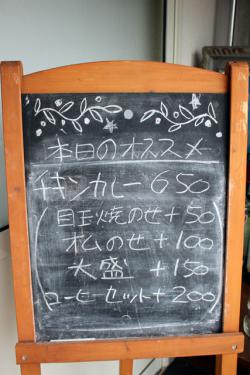 本日のオススメ
チキンカレー 650
(目玉焼のせ+50
オムのせ+100
大盛+150
コーヒーセット+200)